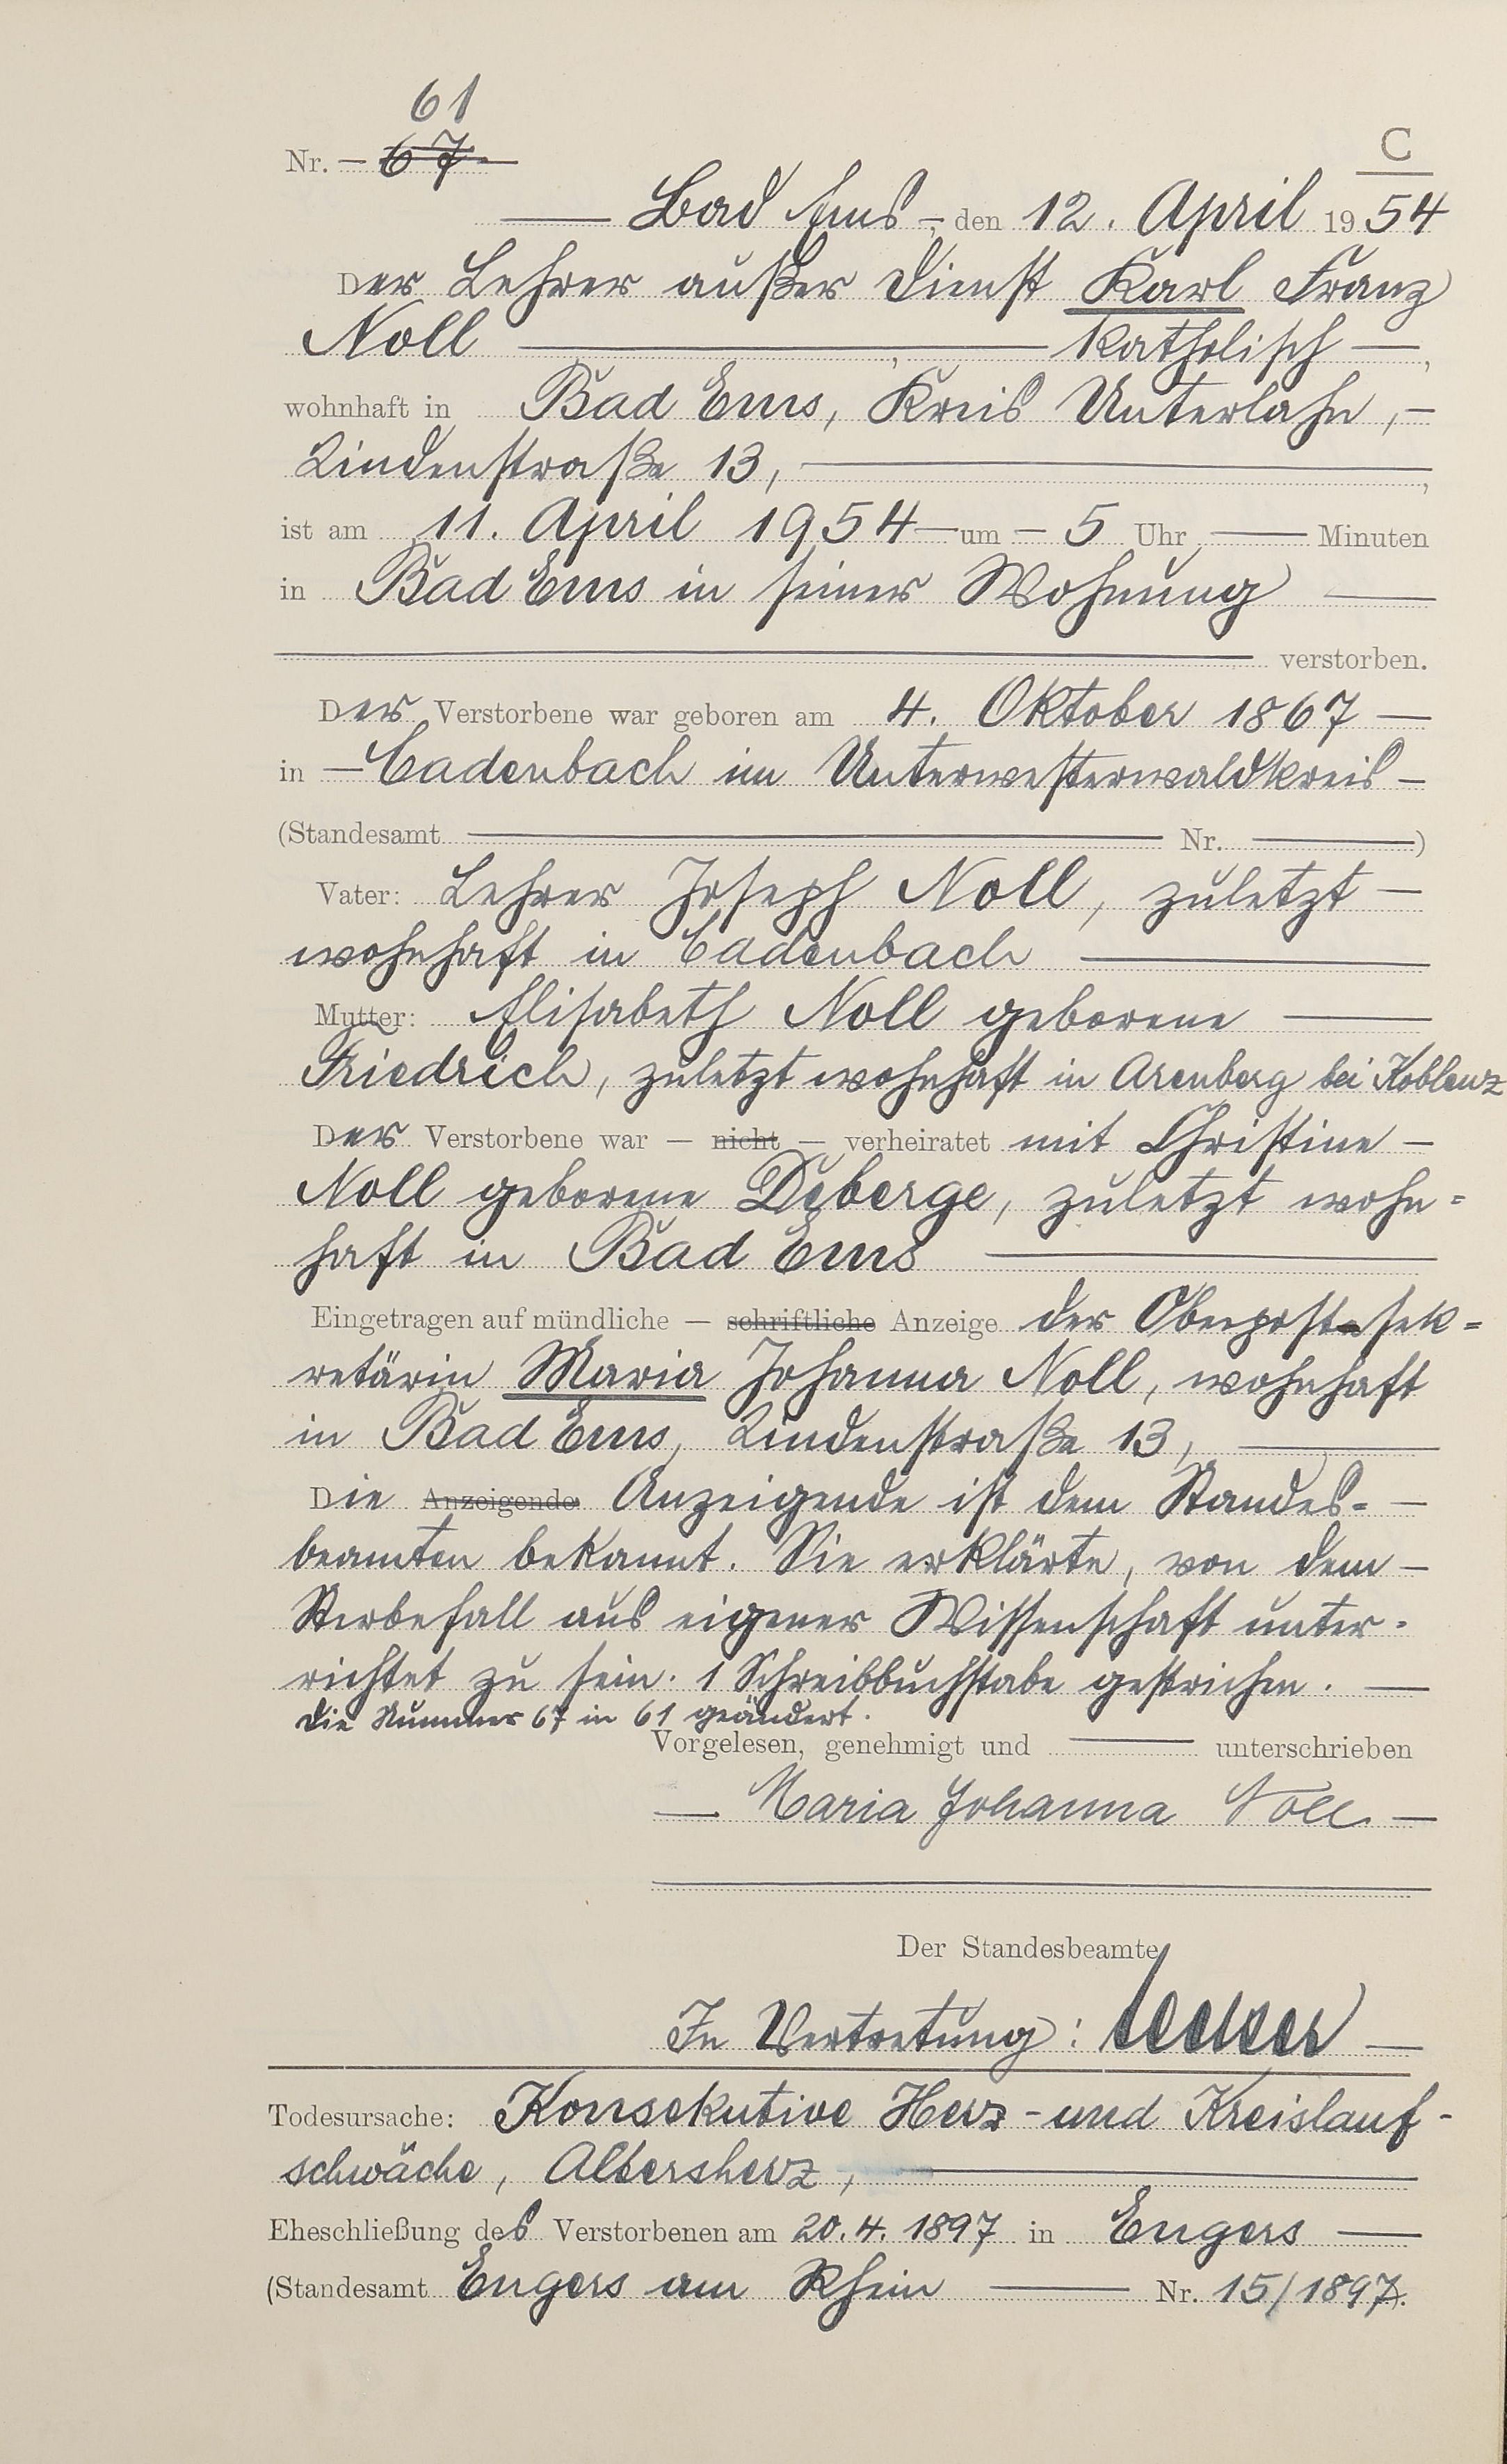 61
Nr. — 67 —
C
Bad Ems, den 12. April 1954
Der Lehrer außer Dienst Karl Franz
Noll ——, —— katholisch —,
wohnhaft in Bad Ems, Kreis Unterlahn, —
Lindenstraße 13, ——,
ist am 11. April 1954 — um — 5 Uhr —— Minuten
in Bad Ems in seiner Wohnung ——
—— verstorben.
Der Verstorbene war geboren am 4. Oktober 1867 —
in — Cadenbach im Unterwesterwaldkreis —
(Standesamt —— Nr. ——)
Vater: Lehrer Joseph Noll, zuletzt —
wohnhaft in Cadenbach ——
Mutter: Elisabeth Noll geborene ——
Friedrich, zuletzt wohnhaft in Arenberg bei Koblenz
Der Verstorbene war — nicht — verheiratet mit Christine —
Noll geborene Deberge, zuletzt wohn=
haft in Bad Ems ——
Eingetragen auf mündliche — schriftliche Anzeige der Oberpostsek=
retärin Maria Johanna Noll, wohnhaft
in Bad Ems, Lindenstraße 13, ——
Die Anzeigende Anzeigende ist dem Standes= —
beamten bekannt. Sie erklärte, von dem —
Sterbefall aus eigener Wissenschaft unter=
richtet zu sein. 1 Schreibbuchstabe gestrichen. —
Die Nummer 67 in 61 geändert.
Vorgelesen, genehmigt und —— unterschrieben
— Maria Johanna Noll —
Der Standesbeamte
In Vertretung:
Todesursache: Konsekutive Herz- und Kreislauf-
schwäche, Altersherz, ——
Eheschließung des Verstorbenen am 20.4.1897 in Engers ——
(Standesamt Engers am Rhein —— Nr. 15/1897).